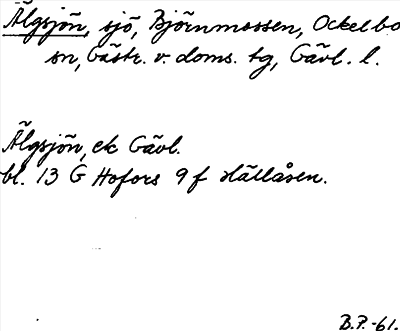 Älgsjön, sjö, Björnmossen, Ockelbo
sn, Gästr. v. doms. tg, Gävl. l.
Älgsjön, ek Gävl.
bl. 13 G Hofors 9 f Hällåsen.
B.P.-61.